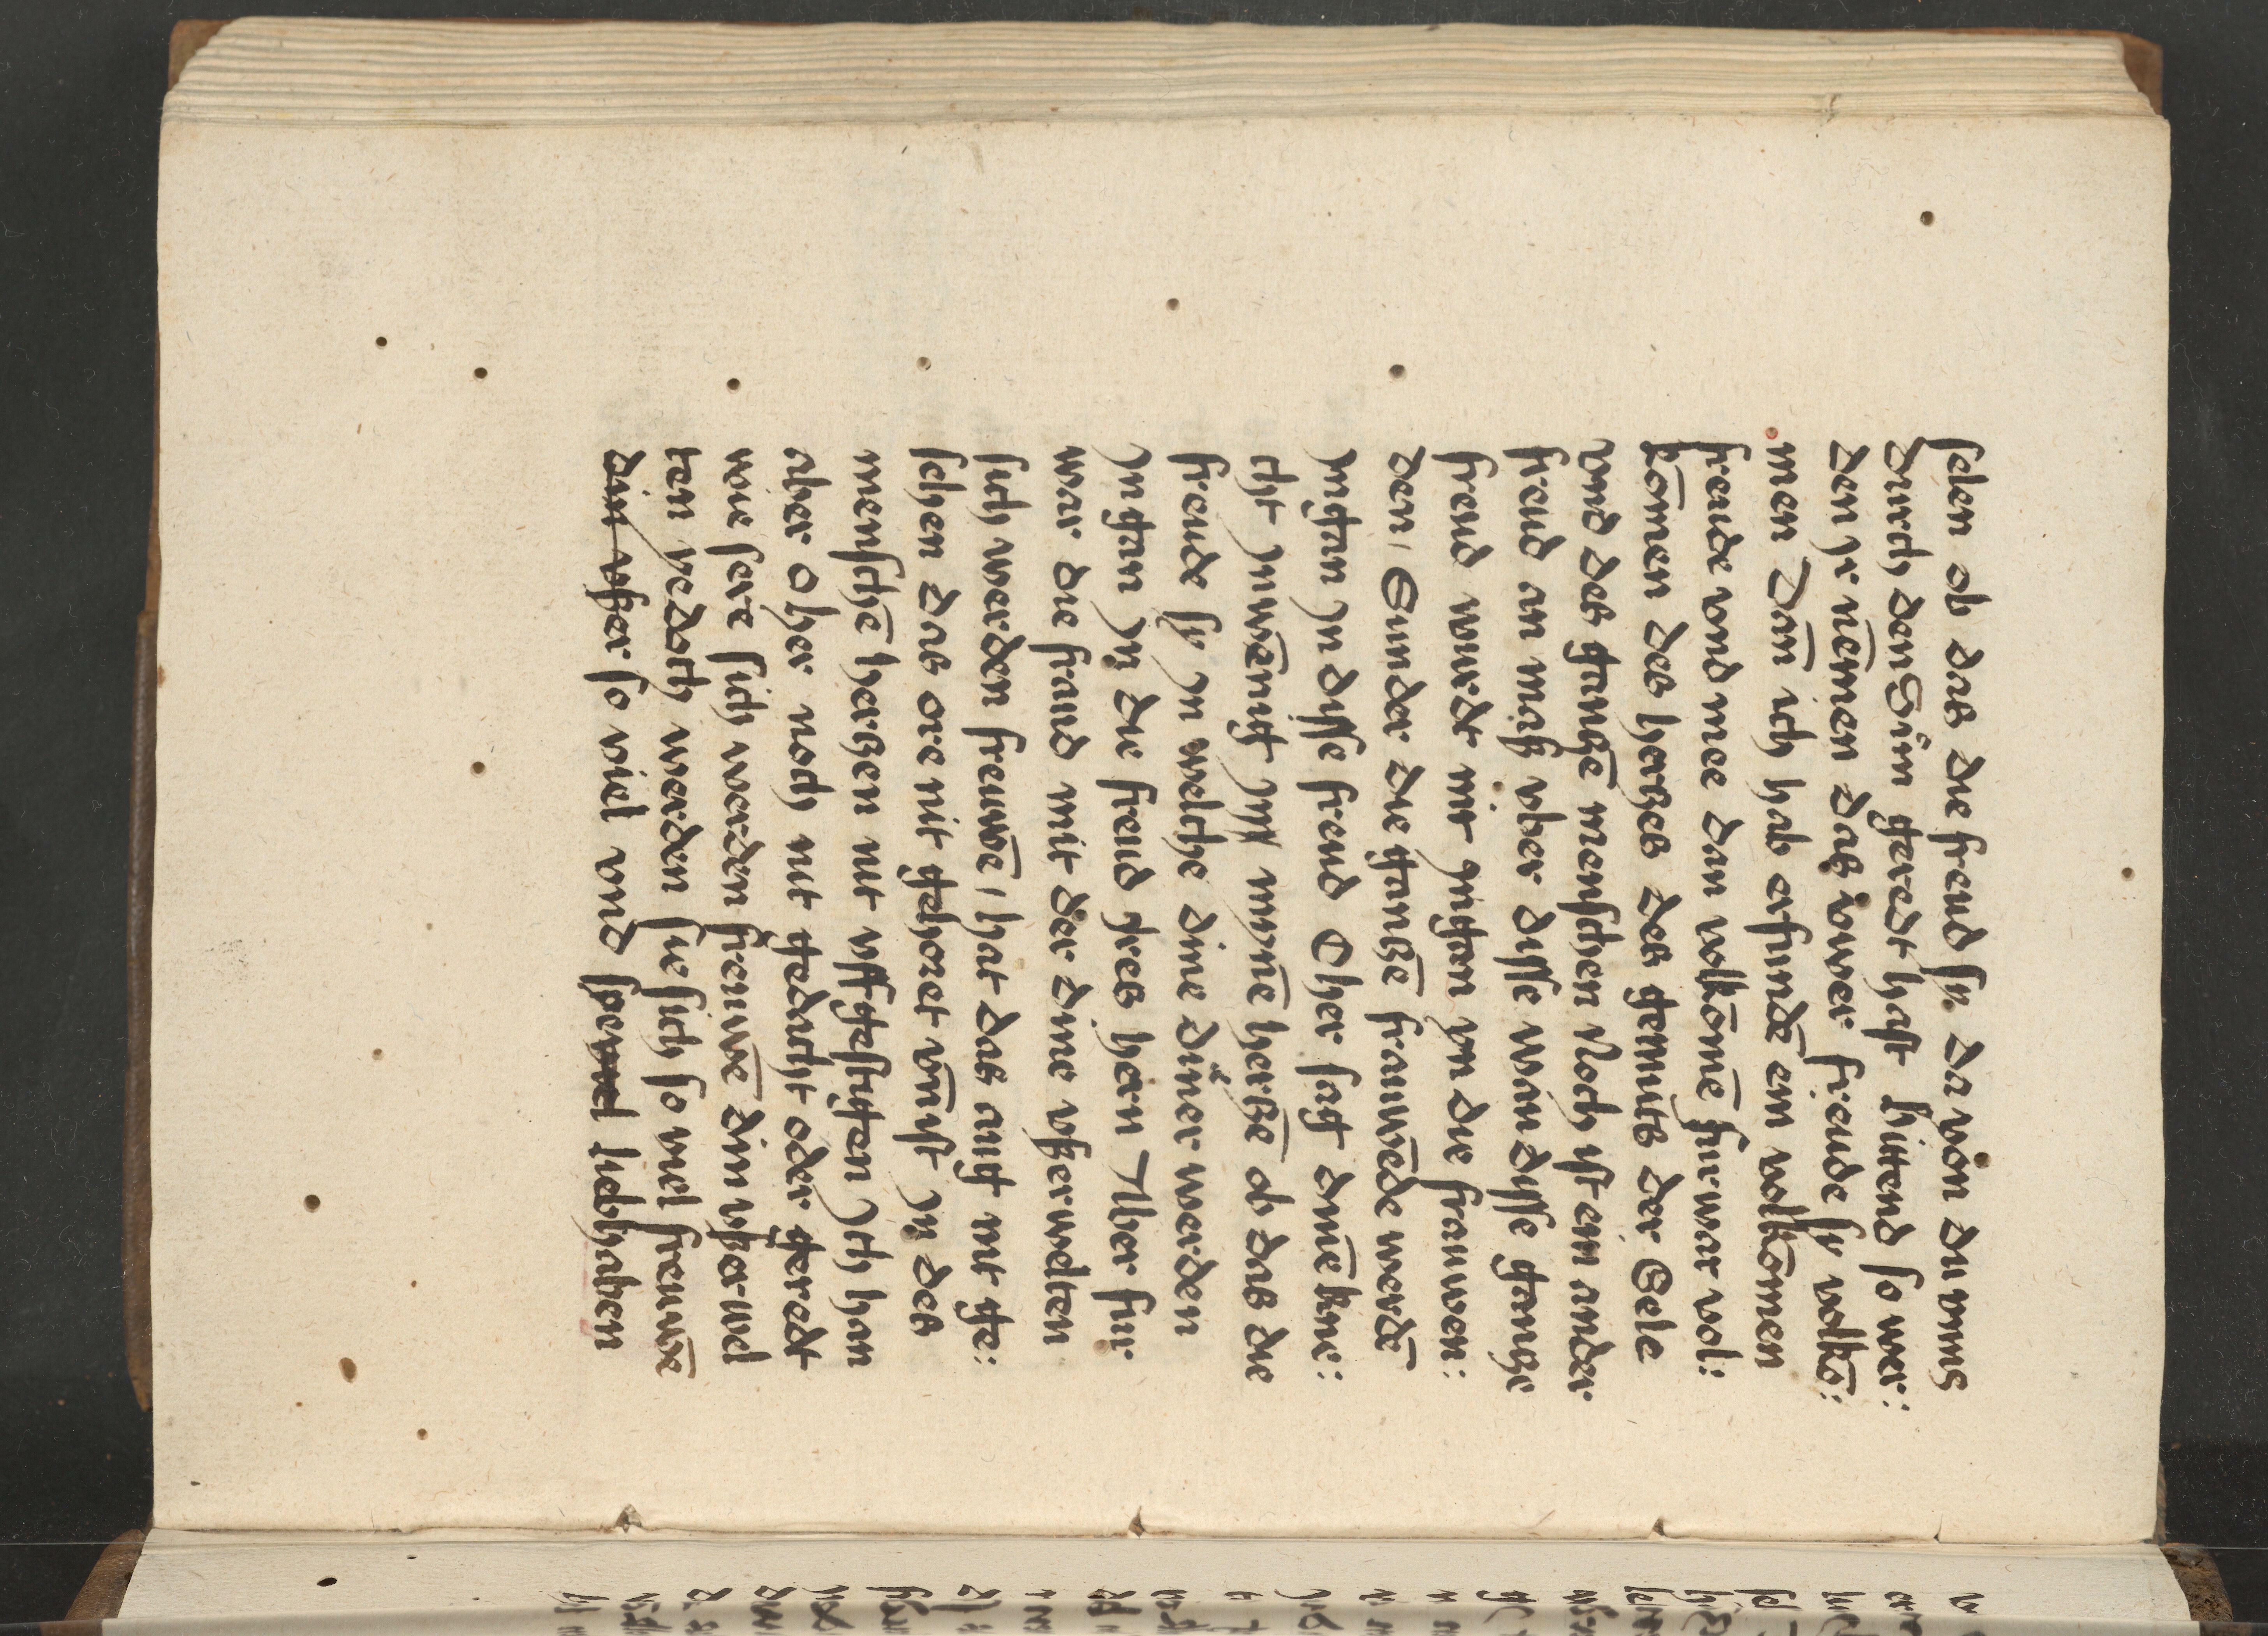 selen ob das die freud sy. da von du vnns
durch den Sůn geredt hast bittend so wer:
den ir nēmen das uwer freude sy volkō:
men Dan̄ ich hab erfundē ein volkōmen
freude vnd mee dan volkōmē furwar vol:
kōmen des herβes des gemuts der Sele
vnd des gantzē menschen Noch ist ein ander
freud on maß vber disse wan disse gantze
freud wurdt nit ingan yn die frauwen:
den, Sunder die gantzē frauwēde werdē
ingan yn disse freud O her sag dinē kne:
cht Inwēnigt yn minē hertzē ob das die
freude sy yn welche dine diner werden
ingan Yn die freud ires hern Aber fur
war die freud mit der dine vßerwelten
sich werden freuwē, hat das aug nit ge:
sehen das ore nit gehoret vn̄ ist yn des
menschē hertzen nit vffgestigen Ich han
aber O her noch nit gedacht oder geredt
wie sere sich werden freuwē din vßerwel
ten yedoch werden sie sich so viel freuwē
din vßer so viel vnd sovvel liebhaben